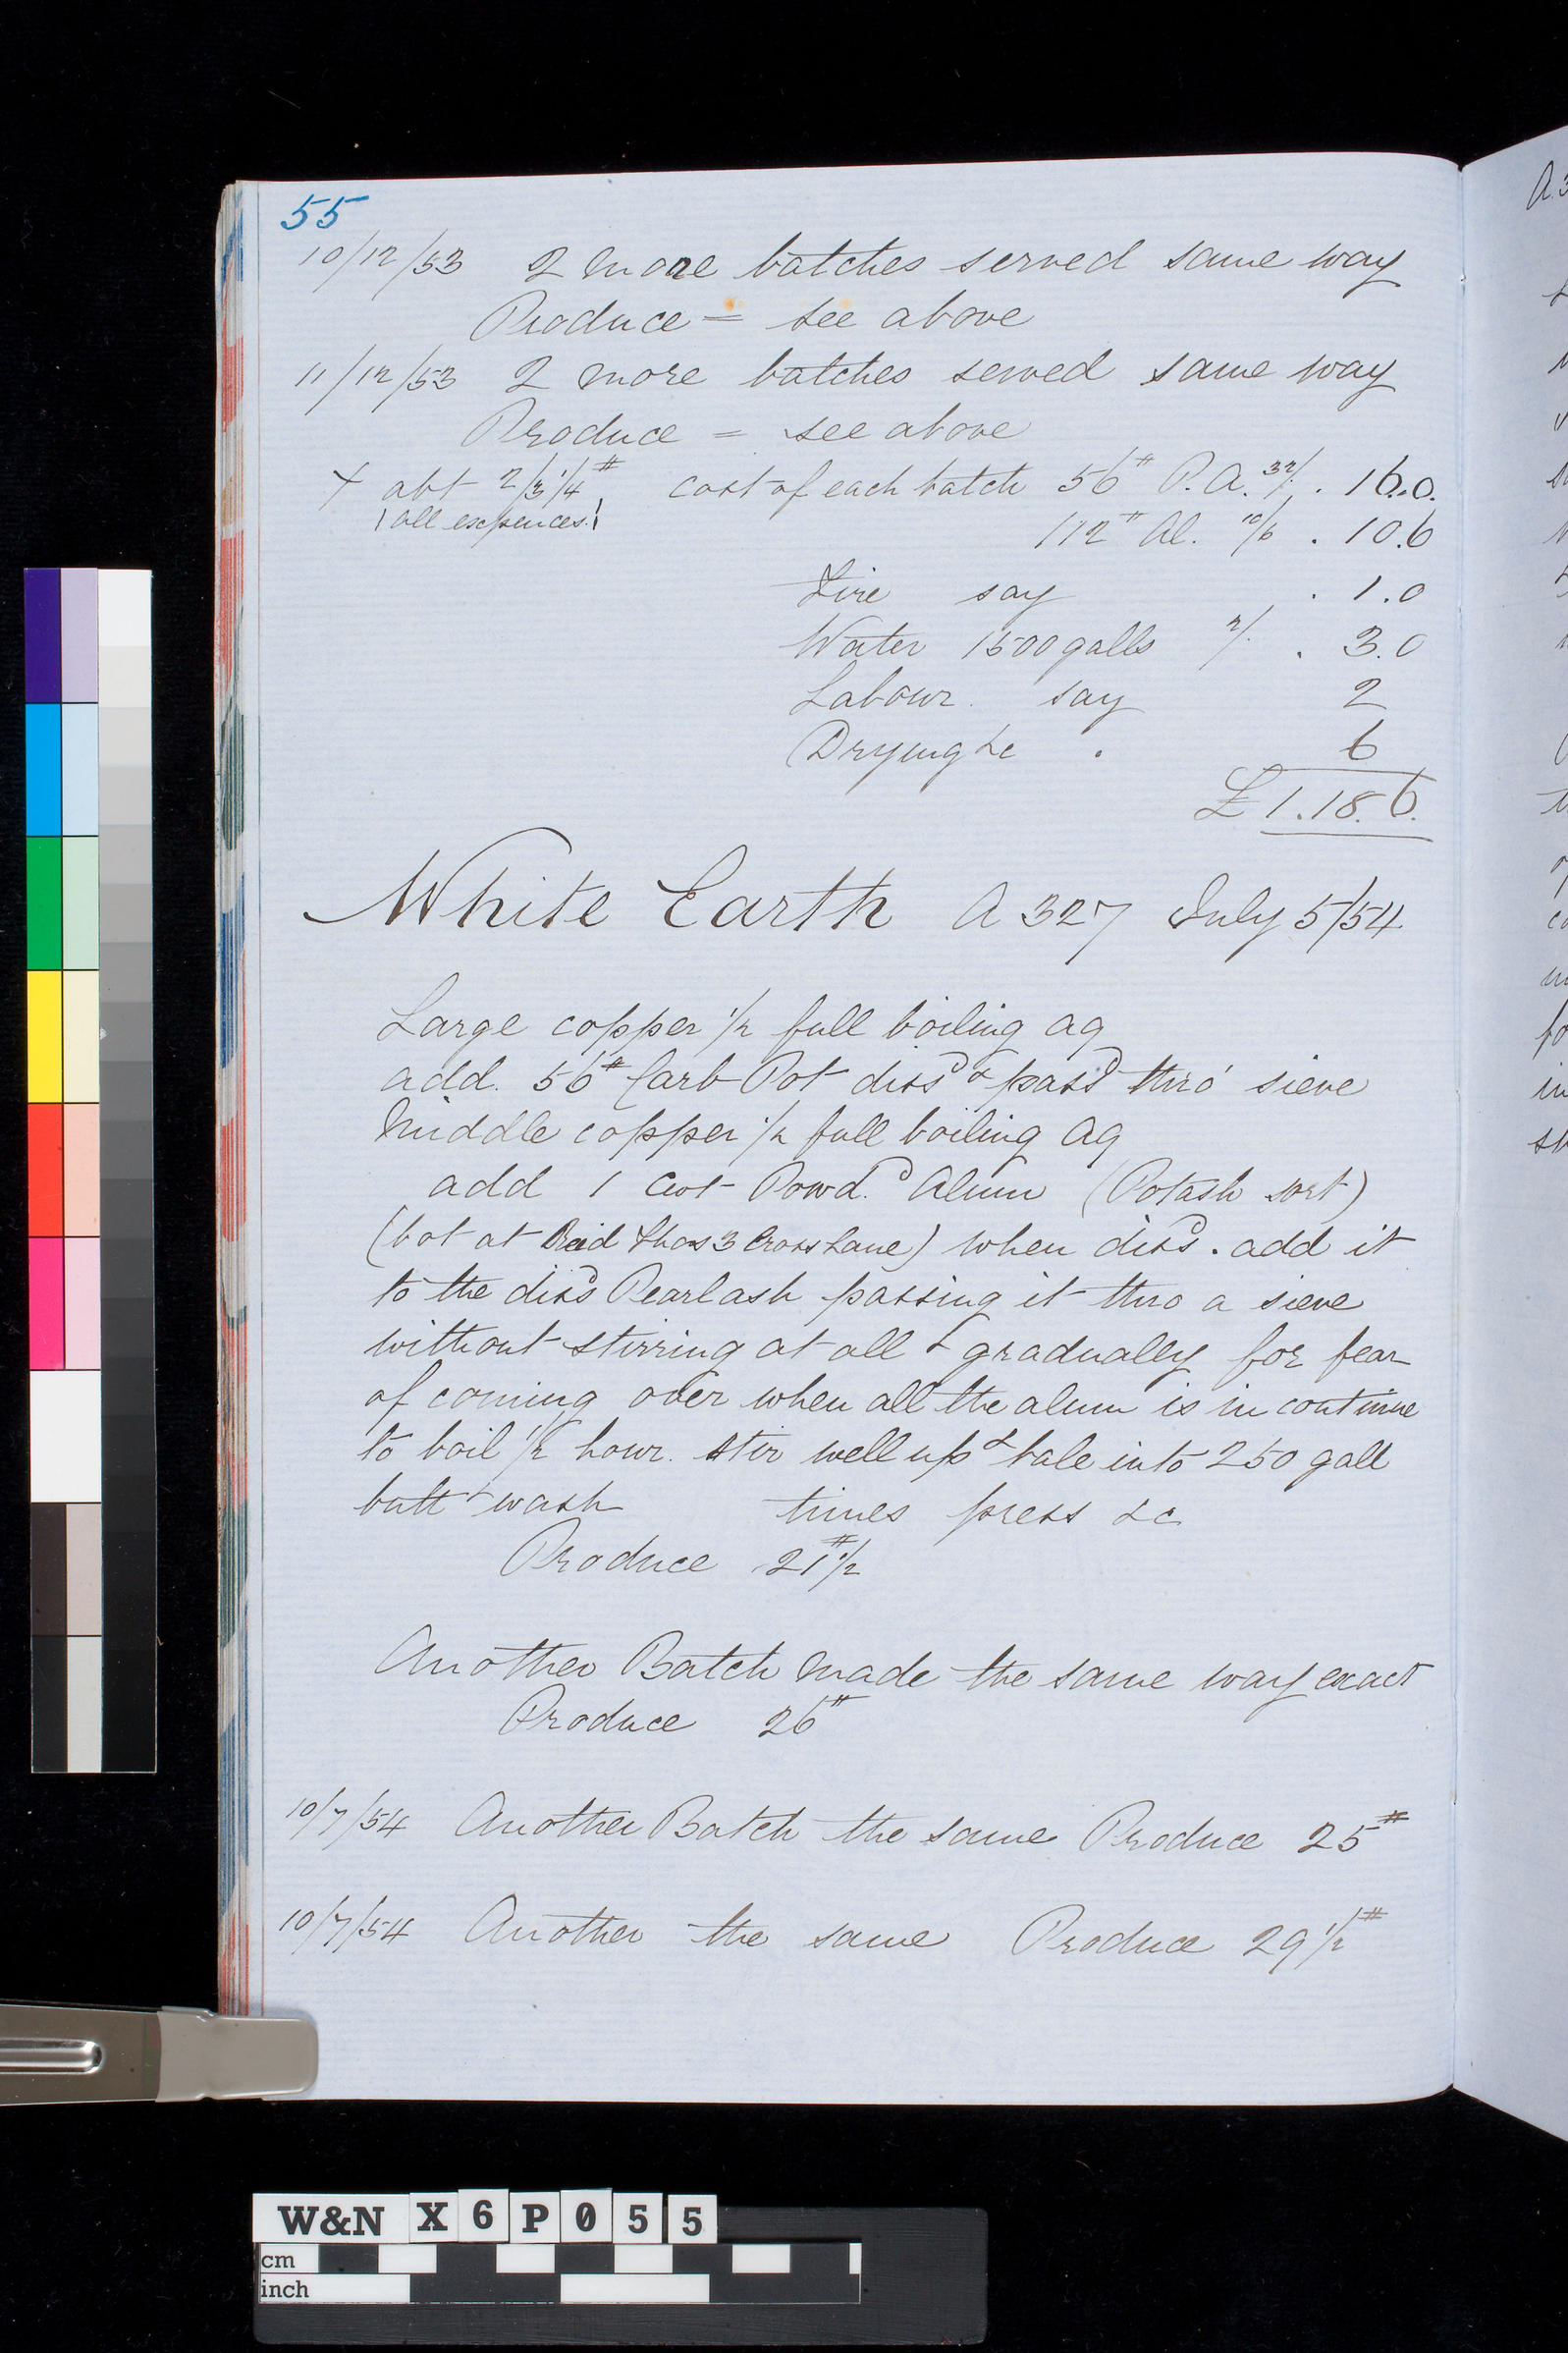 55
10/12/53 2 more batches served same way
Produce = see above
11/12/53 2 more batches served same way
Produce = see above
+ abt 2/3 1/4 # cost of each batch 56# P.A. 32/. . 16.0.
(all expences!) 112# Al. 10/6 . 10.6
Fire say . 1.0
Water 1500 galls 2/. . 3.0
Labour. say 2
Drying &c . 6
£1.18.6.
White Earth A 327 July 5/54
Large copper 1/2 full boiling aq
add. 56# Carb Pot diss'd & pass'd thro' sieve
Middle copper 1/2 full boiling aq
add 1 Cwt Powd.d Alum (Potash sort)
(bot at 3 Cross Lane) when diss'd. add it
to the diss'd Pearlash passing it thro a sieve
without stirring at all & gradually for fear
of coming over when all the alum is in continue
to boil 1/2 hour. stir well up & bale into 250 gall
butt & wash times press &c
Produce 21# 1/2
Another Batch made the same way exact
Produce 26#
10/7/54 Another Batch the same Produce 25#
10/7/54 Another the same Produce 29 1/2#
W&N X6P055
cm
inch